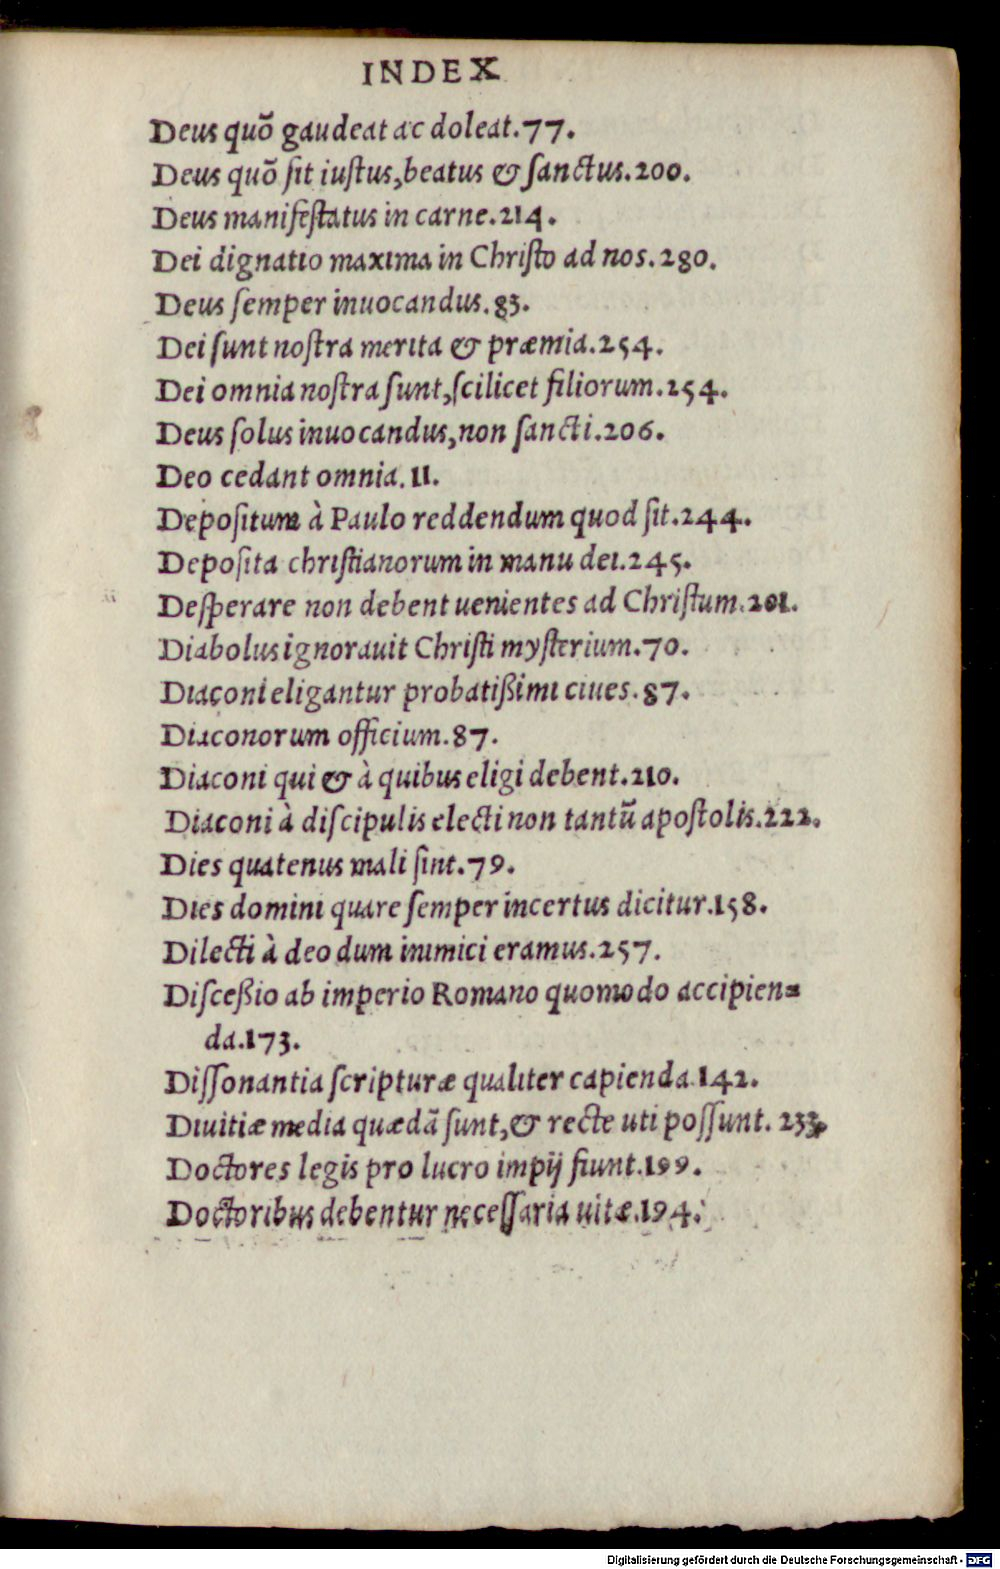 INDEX
Deus quõ gaudeat ac doleat.77.
Deus quõ ſit iuſtus,beatus & ſanctus.200.
Deus manifeſtatus in carne.214.
Dei dignatio maxima in Chriſto ad nos.280.
Deus ſemper inuocandus.83.
Dei ſunt noſtra merita & præmia.254.
Dei omnia noſtra ſunt,ſcilicet filiorum.254.
Deus ſolus inuocandus,non ſancti.206.
Deo cedant omnia.11.
Depoſitum à Paulo reddendum quod ſit.244.
Depoſita chriſtianorum in manu dei.245.
Deſperare non debent uenientes ad Chriſtum.201.
Diabolus ignorauit Chriſti myſterium.70.
Diaconi eligantur probatißimi ciues.87.
Diaconorum officium.87.
Diaconi qui & à quibus eligi debent.210.
Diaconi à diſcipulis electi non tantũ apoſtolis.222.
Dies quatenus mali ſint.79.
Dies domini quare ſemper incertus dicitur.158.
Dilecti à deo dum inimici eramus.257.
Diſceßio ab imperio Romano quomodo accipien⸗
da.173.
Diſſonantia ſcripturæ qualiter capienda.142.
Diuitiæ media quædã ſunt,& recte uti poſſunt. 233.
Doctores legis pro lucro impij fiunt.199.
Doctoribus debentur neceſſaria uitæ.194.
Digitalisierung gefördert durch die Deutsche Forschungsgemeinschaft - DFG